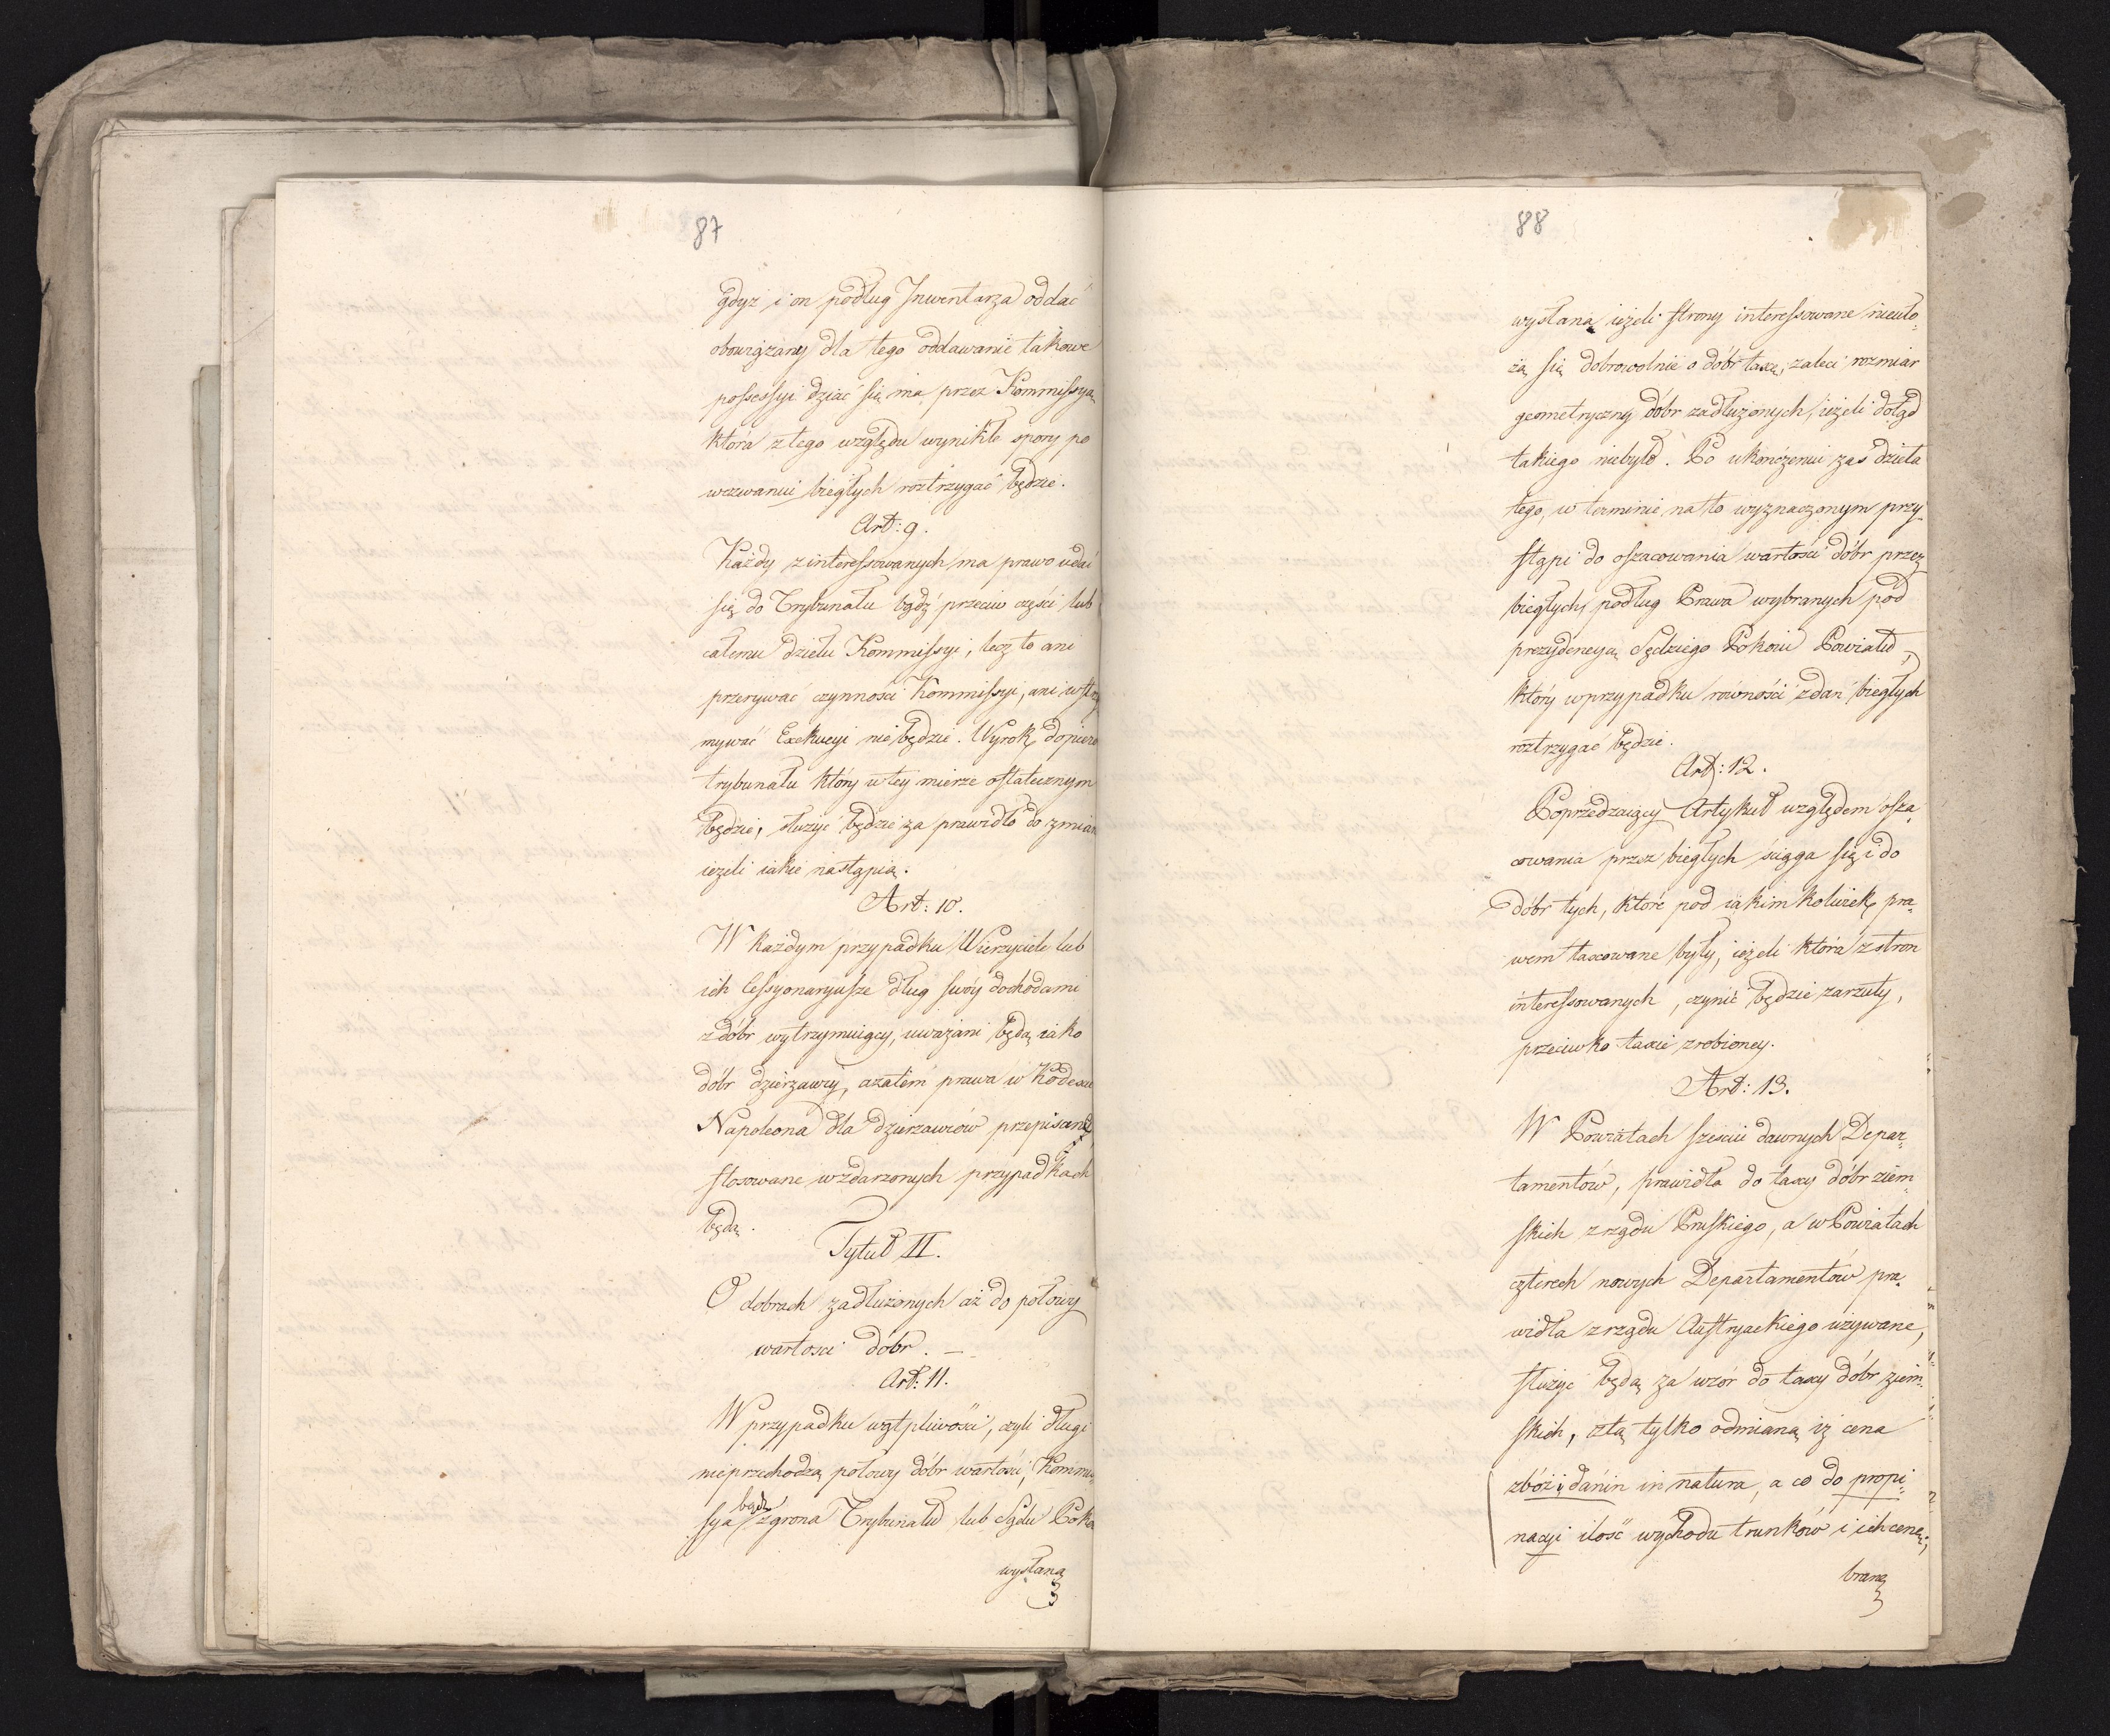 87
gdyż i on podług Inwentarza oddać
obowiązany dla tego oddawanie takowe
possessyi dziać się ma przez Kommissyą
która z tego względu wynikłe spory po
wezwaniu biegłych roztrzygać będzie.
Art: 9.
Każdy z interessowanych ma prawo udać
się do Trybunału bądź przeciw części lub
całemu dziełu Kommissyi, lecz to ani
przerywać czynności Kommissyi, ani wstrzy
mywać Exekucyi nie będzie. Wyrok dopiero
trybunału który w tey mierze ostatecznym
będzie, służyć będzie za prawidło do zmian
ieżeli iakie nastąpią.
Art: 10.
W każdym przypadku Wierzyciele lub
ich Cessyonaryusze dług swóy dochodami
z dóbr wytrzymuiący, uważani będą iako
dóbr dzierżawcy, azatem prawa w Kodexie
Napoleona dla dzierżawców przepisane,
stosowane w zdarzonych przypadkach
będą.
Tytuł II.
O dobrach zadłużonych aż do połowy
wartości dóbr. —
Art: 11.
W przypadku wątpliwości, czyli długi
nieprzechodzą połowy dóbr wartości, Kommis
bądź
sya z grona Trybunału lub Sądu Poko
wysłana
88
wysłana ieżeli strony interessowane nieuło-
żą się dobrowolnie o dóbr taxę, zaleci rozmiar
geometryczny dóbr zadłużonych, ieżeli dotąd
takiego niebyło. Po ukończeniu zaś dzieła
tego, w terminie na to wyznaczonym przy-
stąpi do oszacowania wartości dóbr przez
biegłych podług Prawa wybranych pod
prezydencyą Sędziego Pokoiu Powiatu,
który w przypadku równości zdań biegłych
roztrzygać będzie.
Art: 12.
Poprzedzaiący Artykuł względem osza-
cowania przez biegłych ściąga się i do
dóbr tych, które pod iakim kolwiek pra-
wem taxowane były, ieżeli która z stron
interessowanych, czynić będzie zarzuty,
przeciwko taxie zrobioney.
Art: 13.
W Powiatach sześciu dawnych Depar-
tamentów, prawidła do taxy dóbr ziem-
skich z rządu Pruskiego, a w Powiatach
czterech nowych Departamentów pra-
widła z rządu Austryackiego używane,
służyć będą za wzór do taxy dóbr ziem-
skich, z tą tylko odmianą iż cena
zbóż i danin in natura, a co do propi-
nacyi ilość wychodu trunków i ich cena,
brana